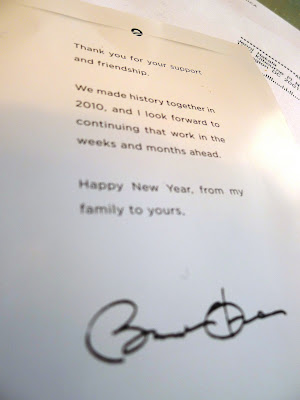 Thank you for your support
and friendship.
We made history together in
2010, and I look forward to
continuing that work in the
weeks and months ahead.
Happy New Year, from my
family to yours,